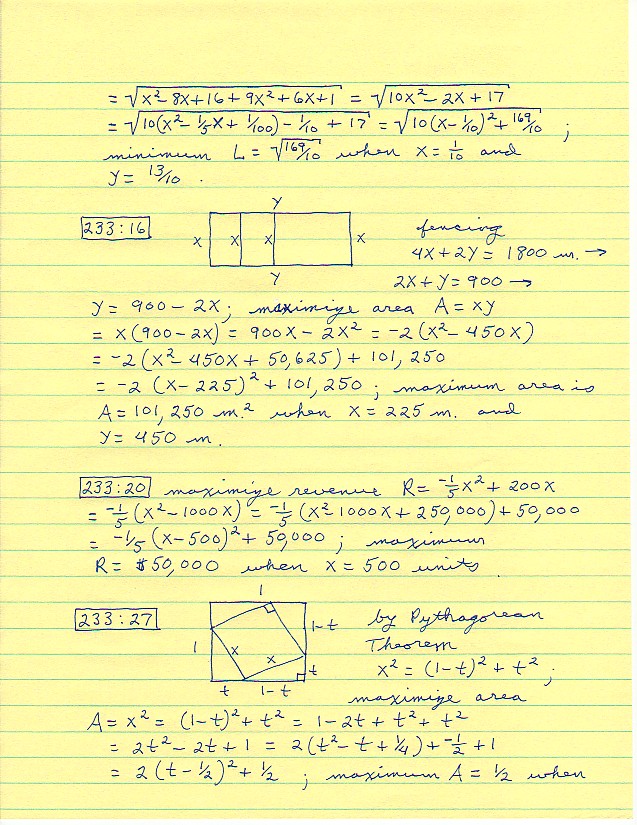 = √(x² - 8x + 16 + 9x² + 6x + 1) = √(10x² - 2x + 17)
= √(10(x² - 1/5 x + 1/100) - 1/10 + 17) = √(10(x - 1/10)² + 169/10) ;
minimum L = √(169/10) when x = 1/10 and
y = 13/10 .
233:16
y
x x x x
y
fencing
4x + 2y = 1800 m. →
2x + y = 900 →
y = 900 - 2x ; maximize area A = xy
= x(900 - 2x) = 900x - 2x² = -2(x² - 450x)
= -2(x² - 450x + 50,625) + 101,250
= -2(x - 225)² + 101,250 ; maximum area is
A = 101,250 m.² when x = 225 m. and
y = 450 m.
233:20 maximize revenue R = -1/5 x² + 200x
= -1/5 (x² - 1000x) = -1/5 (x² - 1000x + 250,000) + 50,000
= -1/5 (x - 500)² + 50,000 ; maximum
R = $50,000 when x = 500 units
233:27
1
1-t
1
x
x
t
t 1-t
by Pythagorean
Theorem
x² = (1-t)² + t² ;
maximize area
A = x² = (1-t)² + t² = 1 - 2t + t² + t²
= 2t² - 2t + 1 = 2(t² - t + 1/4) + -1/2 + 1
= 2(t - 1/2)² + 1/2 ; maximum A = 1/2 when